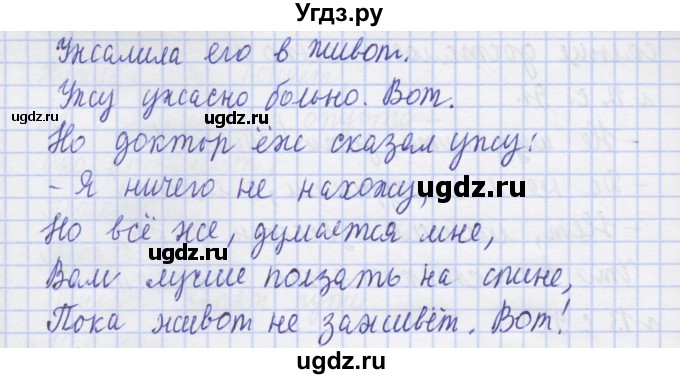 Угдз.ру
Ужалила его в живот.
Ужу ужасно больно. Вот.
Но доктор ёж сказал ужу:
- Я ничего не нахожу,
ugdz.ru
ugdz.ru
Но всё же, думается мне,
Вам лучше ползать на спине,
Пока живот не заживёт. Вот!
ugdz.ru
ugdz.ru